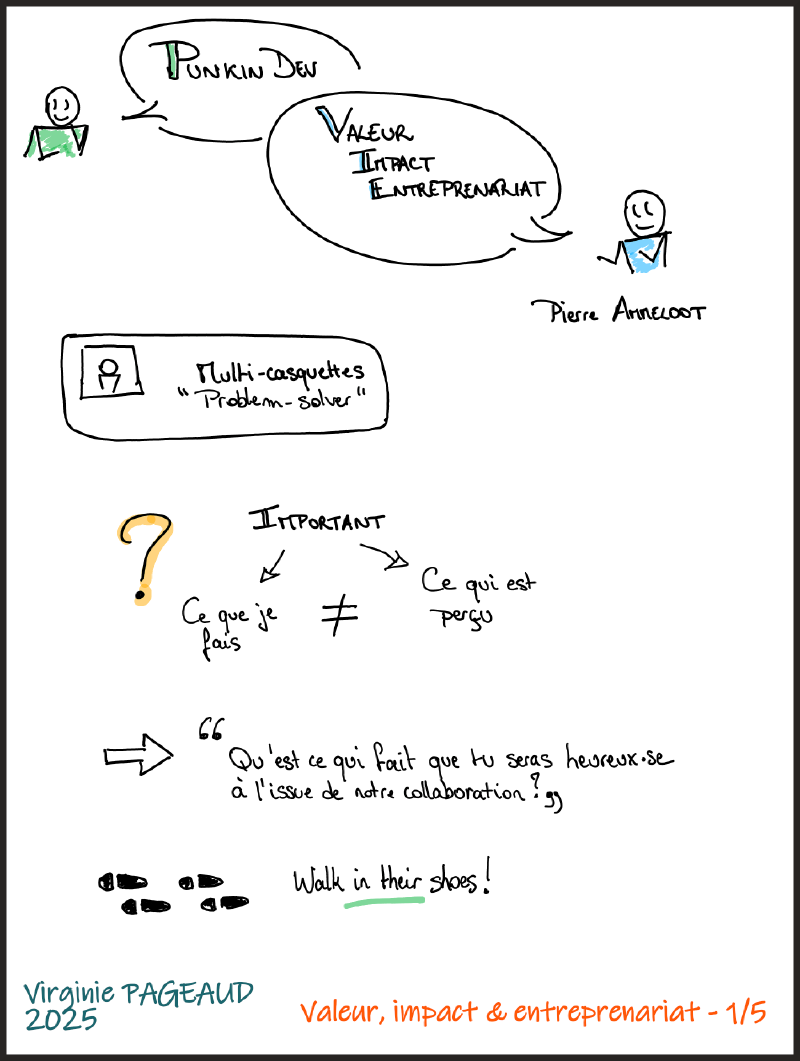 PUNKINDEV
VALEUR
IMPACT
ENTREPRENARIAT
Pierre AMMELOOT
Multi-casquettes
"Problem-solver"
?
IMPORTANT
Ce que je
fais
≠
Ce qui est
perçu
“
Qu'est ce qui fait que tu seras heureux·se
à l'issue de notre collaboration ? ”
Walk in their shoes !
Virginie PAGEAUD
2025
Valeur, impact & entreprenariat - 1/5